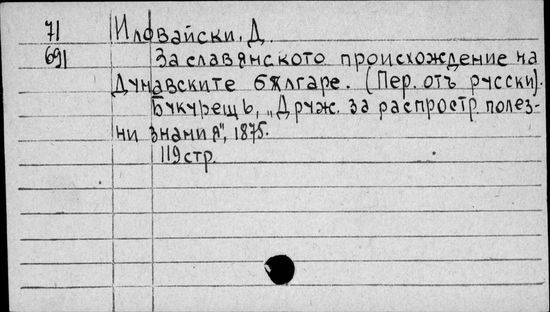 71 Иловайски, Д.
691 За славянското происхождение на
Дунавските бѫлгаре. (Пер. отъ русски).
Букурещъ, „Друж. за распростр. полез-
ни знания", 1875.
119 стр.